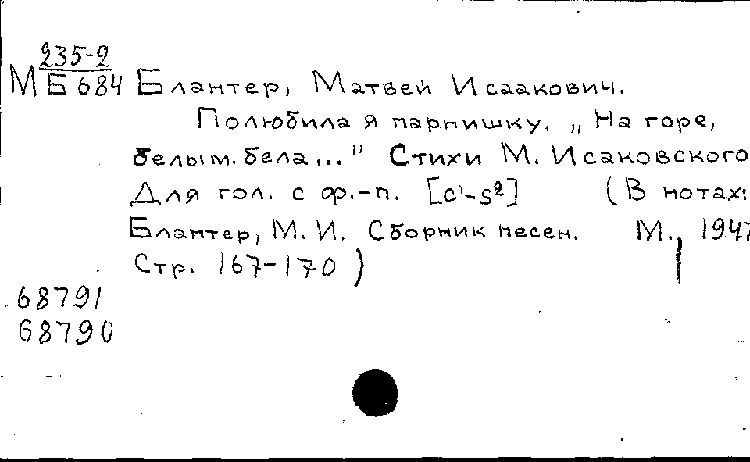 235-2
М Б 684 Блантер, Матвей Исаакович.
Полюбила я парнишку. „На горе,
белым. бела..." Стихи М. Исаковского
Для гол. с ф.-п. [c¹-s²] (В нотах:
Блантер, М. И. Сборник песен. М., 1947
Стр. 167-170)
68791
68790